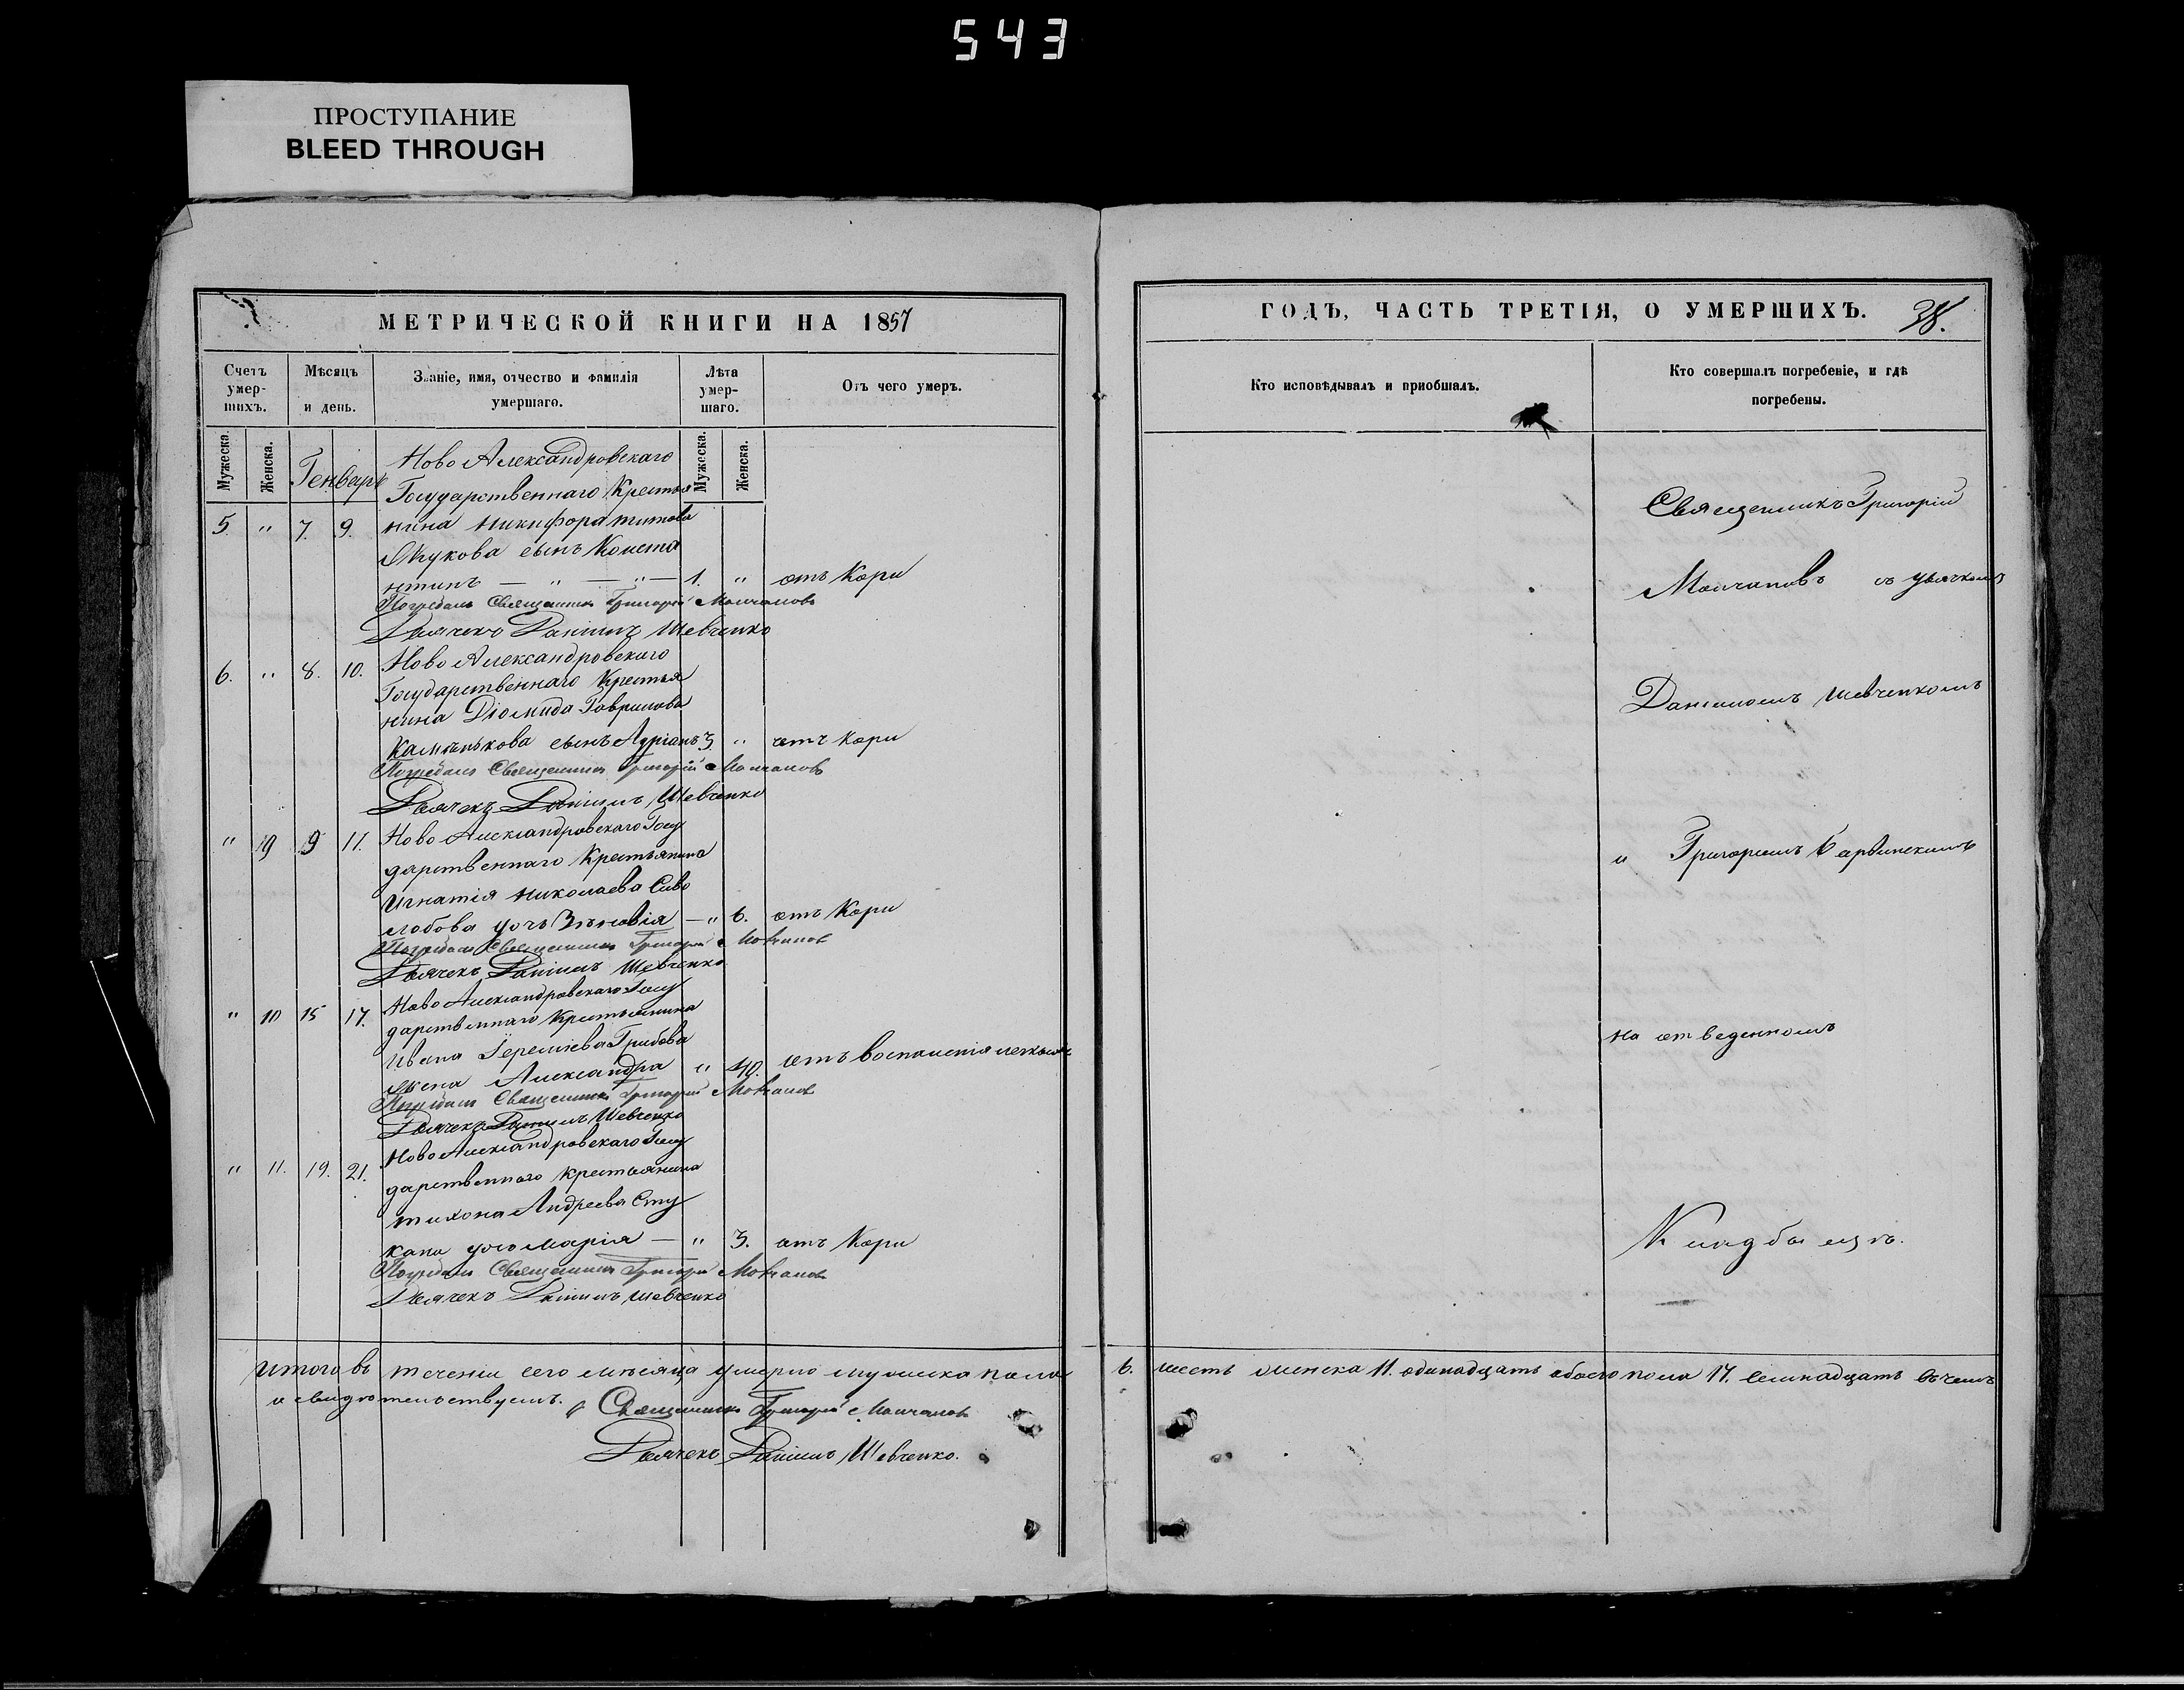 543
ПРОСТУПАНИЕ
BLEED THROUGH
МЕТРИЧЕСКОЙ КНИГИ НА 1857
Счетъ умер-шихъ.
Мѣсяцъ и день.
Званіе, имя, отчество и фамилія умершаго.
Лѣта умер-шаго.
Отъ чего умеръ.
Мужеска.
Женска.
Генварь
Мужеска.
Женска.
Ново Александровскаго
Государственнаго Крестья
5. " 7. 9. нина Никифора Титова
Жукова сынъ Конста
нтинъ — " — " — 1. " отъ Кори
Погребалъ Священникъ Григорій Молчановъ
Дьячекъ Даніилъ Шевченко
6. " 8. 10. Ново Александровскаго
Государственнаго Крестья
нина Діомида Гаврилова
сынъ Адріанъ 3. " отъ Кори
Погребалъ Священникъ Григорій Молчановъ
Дьячекъ Даніилъ Шевченко
" 9 9 11. Ново Александровскаго Госу
дарственнаго Крестьянина
Игнатія Николаева Сиво
лобова дочь Зѣновія — " 6. отъ Кори
Погребалъ Священникъ Григорій Молчановъ
Дьячекъ Даніилъ Шевченко
" 10 15 17. Ново Александровскаго Госу
дарственнаго Крестьянина
Ивана Іереміева Грибова
жена Александра " 40. отъ воспаленія
Погребалъ Священникъ Григорій Молчановъ
Дьячекъ Даніилъ Шевченко
Ново Александровскаго Госу
" 11. 19. 21. дарственнаго Крестьянина
Тихона Андреева Сту
кана дочь Марія — " 3. отъ Кори
Погребалъ Священникъ Григорій Молчановъ
Дьячекъ Даніилъ Шевченко
Итого въ теченіи сего мѣсяца умерло мужеска пола
и свидѣтельствуемъ. Священникъ Григорій Молчановъ
Дьячекъ Даніилъ Шевченко.
ГОДЪ, ЧАСТЬ ТРЕТІЯ, О УМЕРШИХЪ. 38.
Кто исповѣдывалъ и пріобщалъ.
Кто совершалъ погребеніе, и гдѣ погребены.
Священникъ Григорій
Молчановъ съ дьячкомъ
Даніиломъ Шевченкомъ
и Григоріемъ Барвинскимъ
на отведенномъ
Кладбищѣ.
6. шесть женска 11. одинадцать обоего пола 17. семнадцать въ чемъ